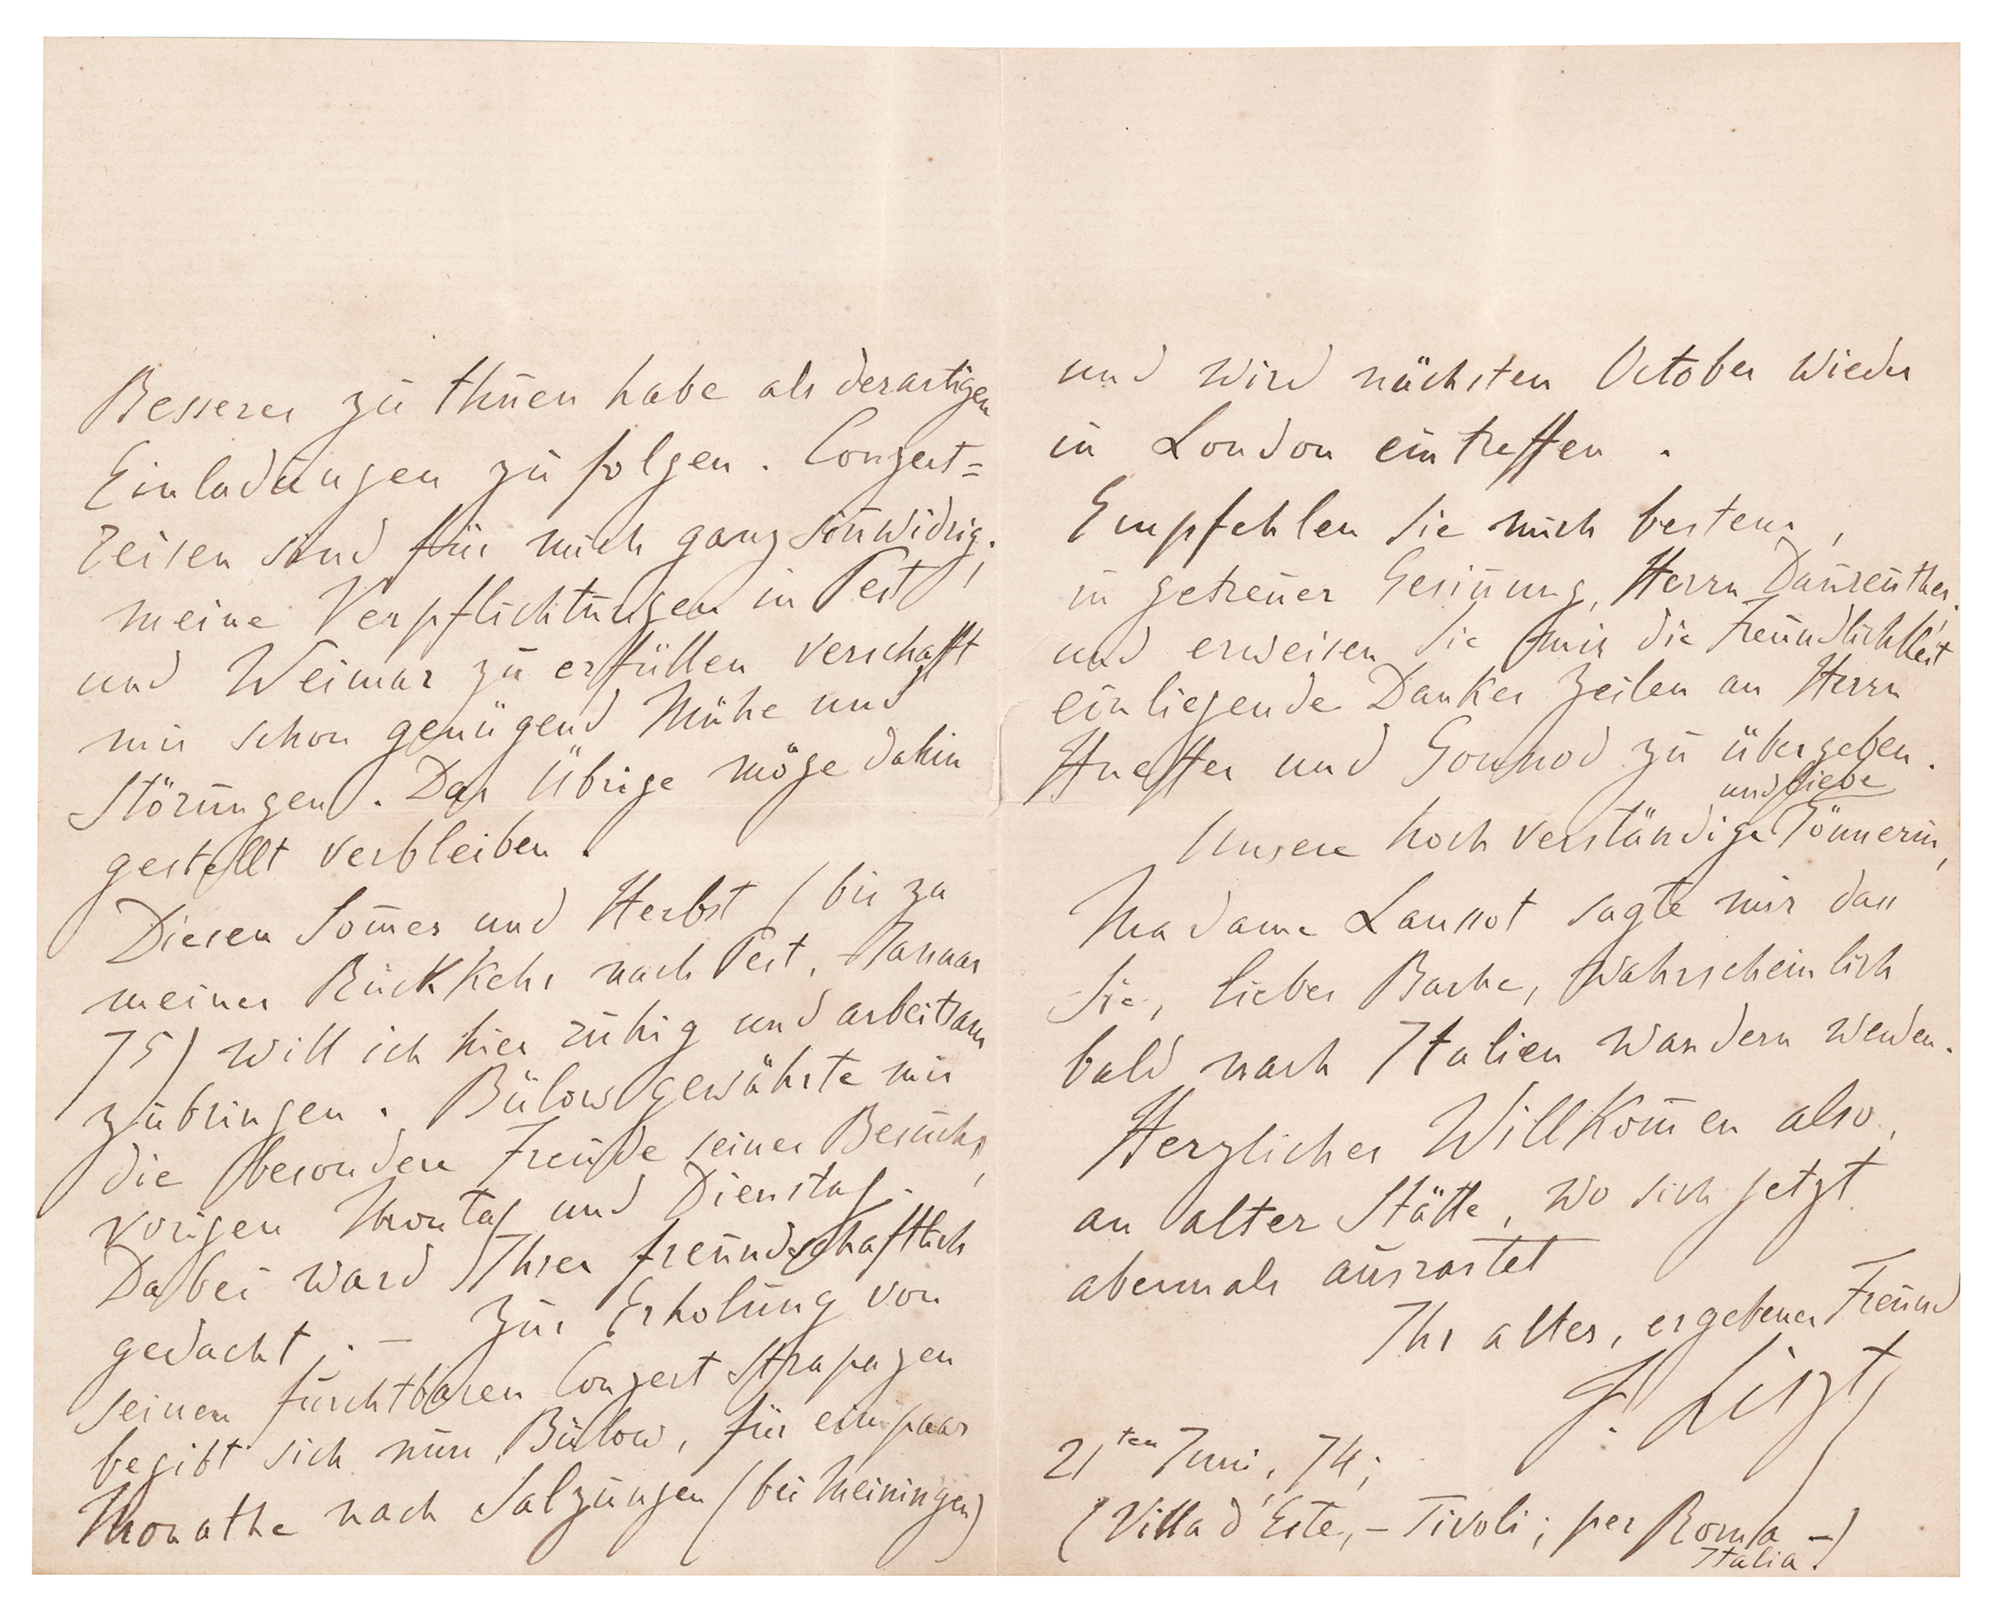 Besseres zu thuen habe als derartigen
Einladungen zu folgen. Conzert=
reisen sind für mich ganz sinnwidrig;
meine Verpflichtungen in Pest
und Weimar zu erfüllen verschafft
mir schon genügend Mühe und
Störungen. Das Übrige möge dahin
gestellt verbleiben.
Diesen Som̄er und Herbst (bis zu
meiner Rückkehr nach Pest, Januar
75) will ich hier ruhig und arbeitsam
zubringen. Bülow gewährte mir
die besondere Freude seines Besuchs,
vorigen Montag und Dienstag.
Dabei ward Ihrer freundschaftlich
gedacht. – Zur Erholung von
seinen furchtbaren Conzert Strapazen
begibt sich nun Bülow, für ein paar
Monathe nach Salzungen (bei Meiningen)
und wird nächsten October wieder
in London eintreffen.
Empfehlen Sie mich bestens,
in getreuer Gesinnung, Herrn Dannreuther,
und erweisen Sie mir die Freundlichkeit
einliegende Dankes Zeilen an Herrn
Hueffer und Gounod zu übergeben.
und liebe
Unsere hoch verständige Gönnerin,
Madame Laussot sagte mir dass
Sie, lieber Bache, wahrscheinlich
bald nach Italien wandern werden.
Herzliches Willkom̄en also,
an alter Stätte, wo sich jetzt
abermals ausrastet
Ihr alter, ergebener Freund
F. Liszt
21ten Juni, 74;
(Villa d'Este, – Tivoli; per Roma –)
Italia.